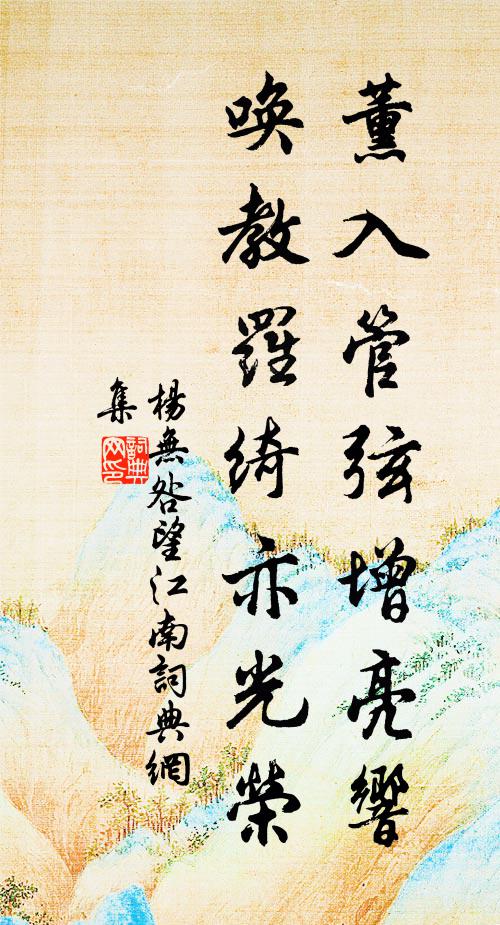 薰入管弦增亮響
喚教羅綺亦光榮
楊無咎望江南詞典網
集
詞典
网印